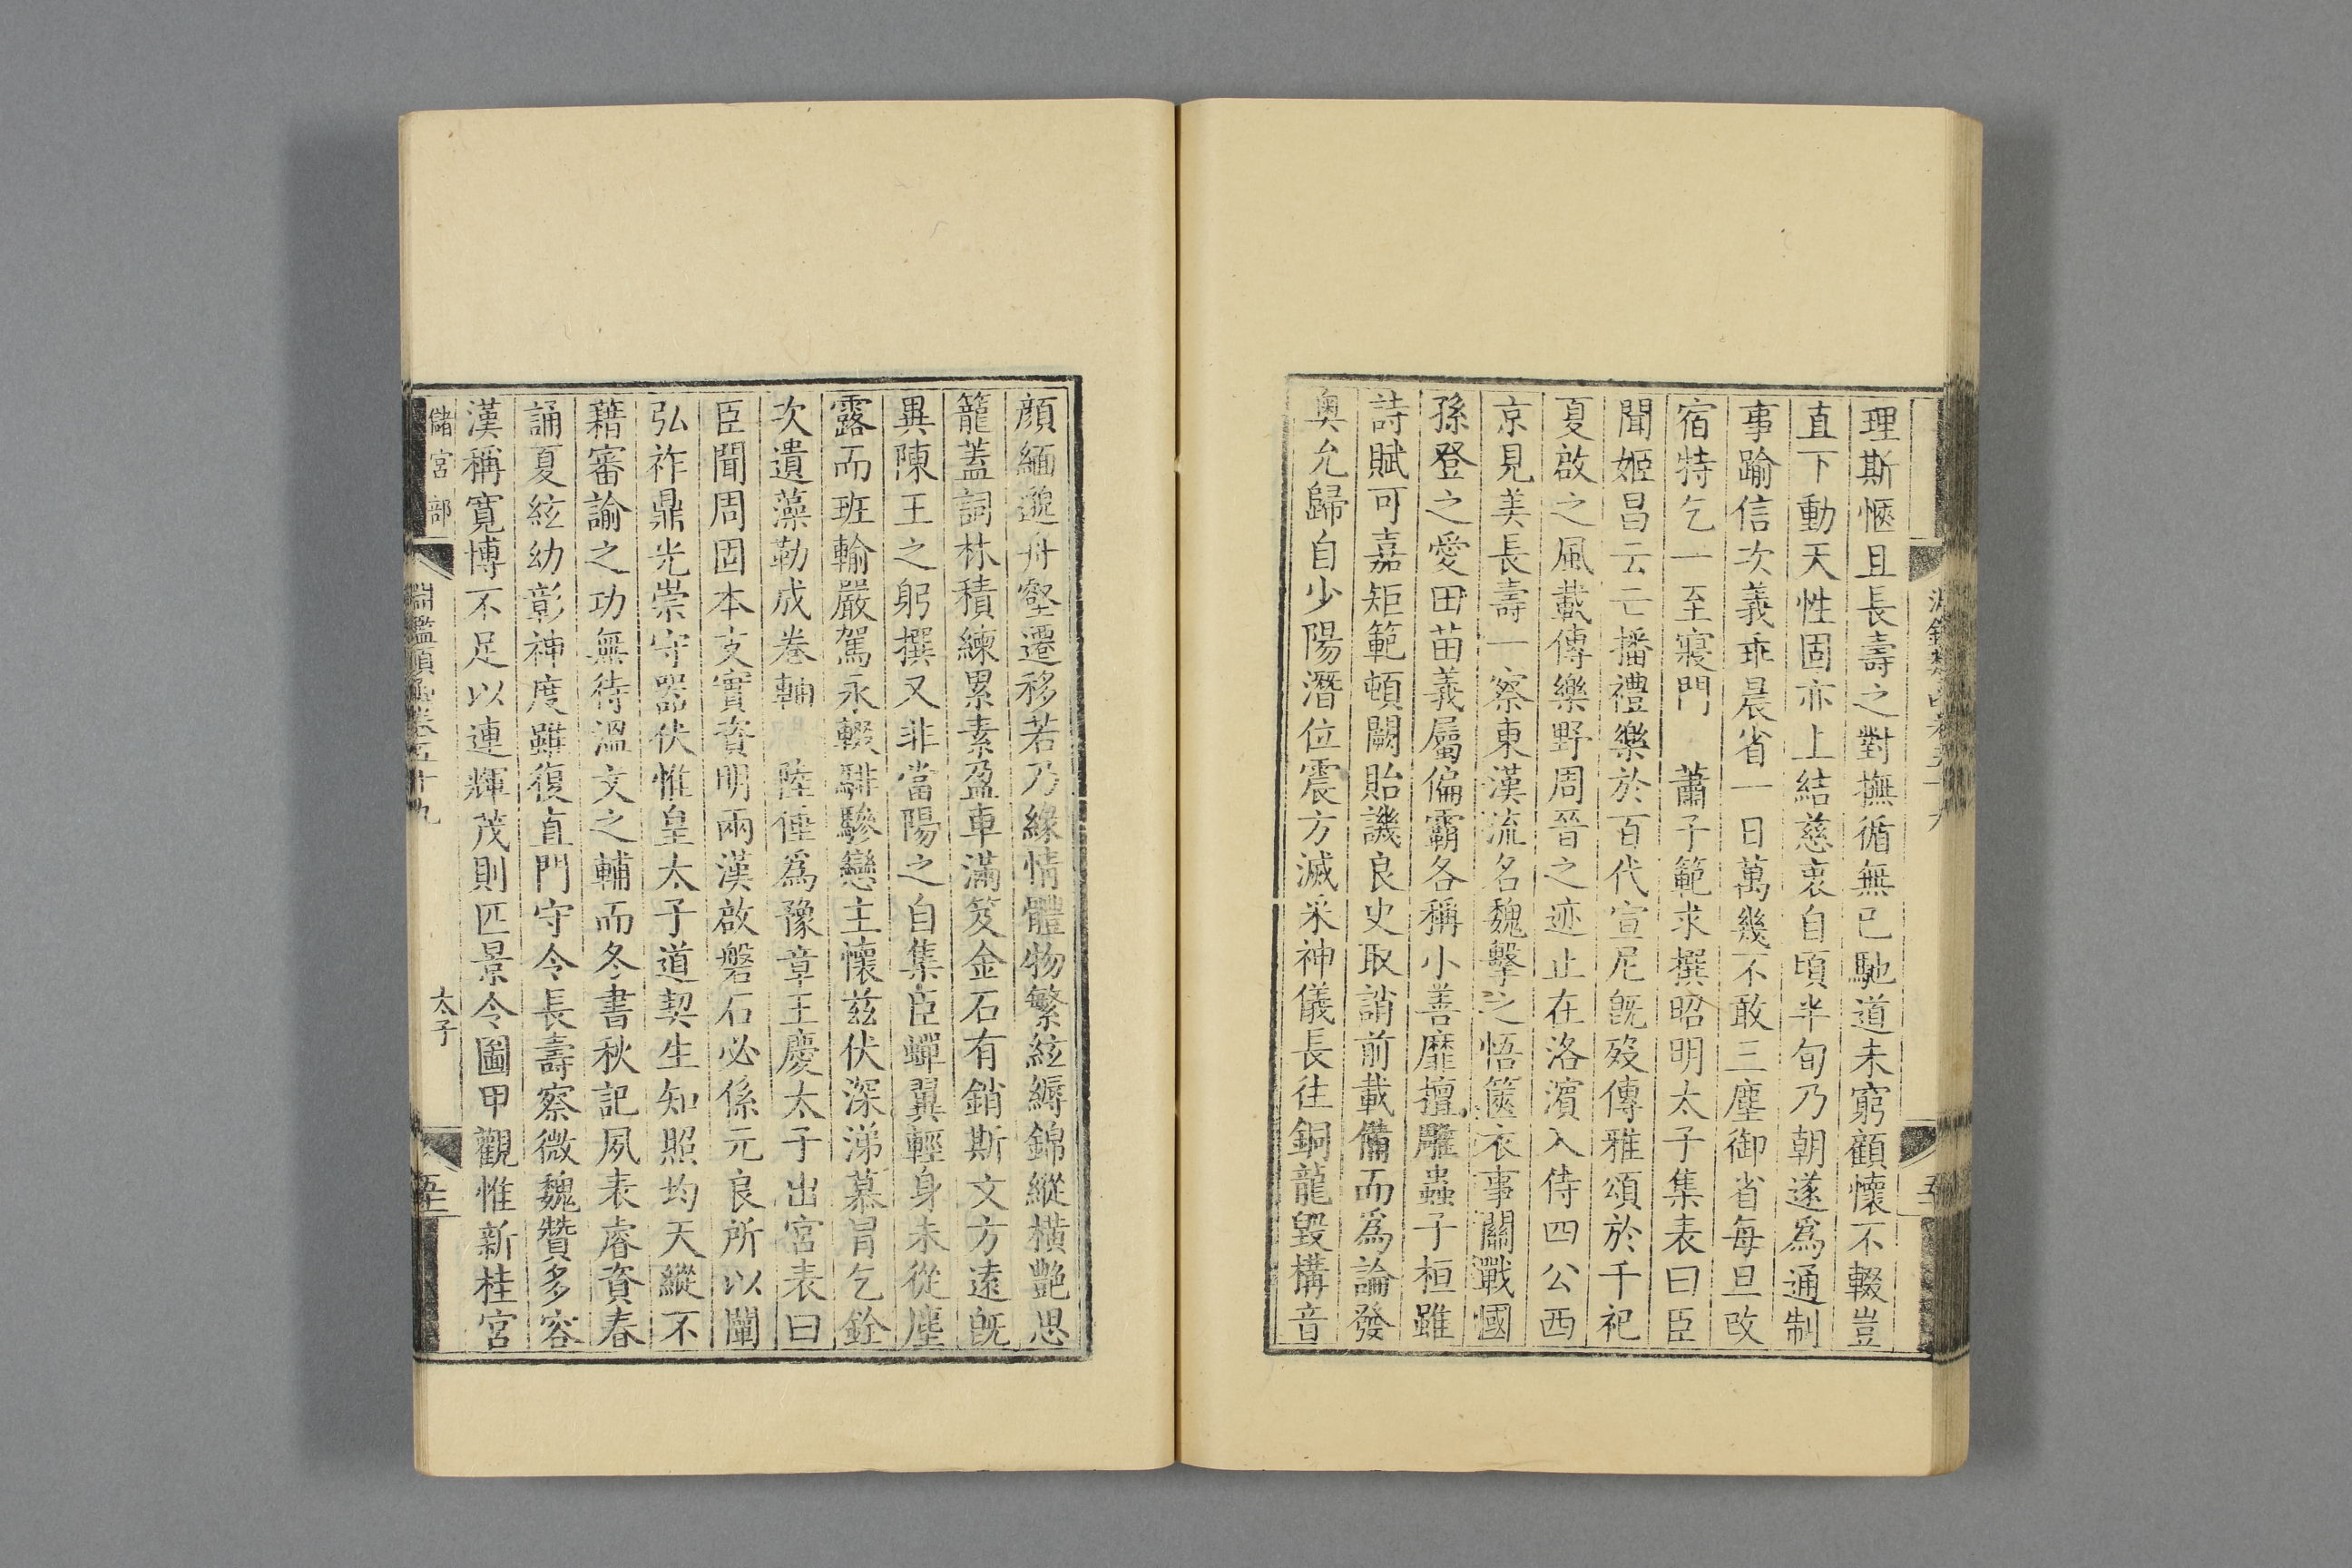 理斯愜且長壽之對撫循無已馳道未窮顧懷不輟豈
直下動天性固亦上結慈衷自頃半旬乃朝遂爲通制
事踰信次義乖晨省一日萬幾不敢三塵御省每旦改
宿特乞一至寢門　蕭子範求撰昭明太子集表曰臣
聞姬昌云亡播禮樂於百代宣尼旣歿傳雅頌於千祀
夏啟之風載傳樂野周晉之迹止在洛濱入侍四公西
京見美長壽一察東漢流名魏擊之悟篋衣事關戰國
孫登之愛田苗義屬偏霸各稱小善靡擅雕蟲子桓雖
詩賦可嘉矩範頓闕貽譏良史取誚前載備而爲論發
奧允歸自少陽潛位震方滅采神儀長往銅龍毀構音
顔緬邈舟壑遷移若乃緣情體物繁絃縟錦縱橫艷思
籠蓋詞林積練累素盈車滿笈金石有銷斯文方遠旣
異陳王之躬撰又非當陽之自集臣蟬翼輕身未從塵
露而班輸嚴駕永輟騑驂戀主懷兹伏深涕慕冒乞銓
次遺藻勒成卷軸　陸倕爲豫章王慶太子出宮表曰
臣聞周固本支實資明兩漢啟磐石必係元良所以闡
弘祚鼎光崇守器伏惟皇太子道契生知照均天縱不
藉審諭之功無待溫文之輔而冬書秋記夙表睿資春
誦夏絃幼彰神度雖復直門守令長壽察微魏贊多容
漢稱寬博不足以連輝茂則匹景令圖甲觀惟新桂宮
儲宮部
淵鑑類函卷五十九
太子